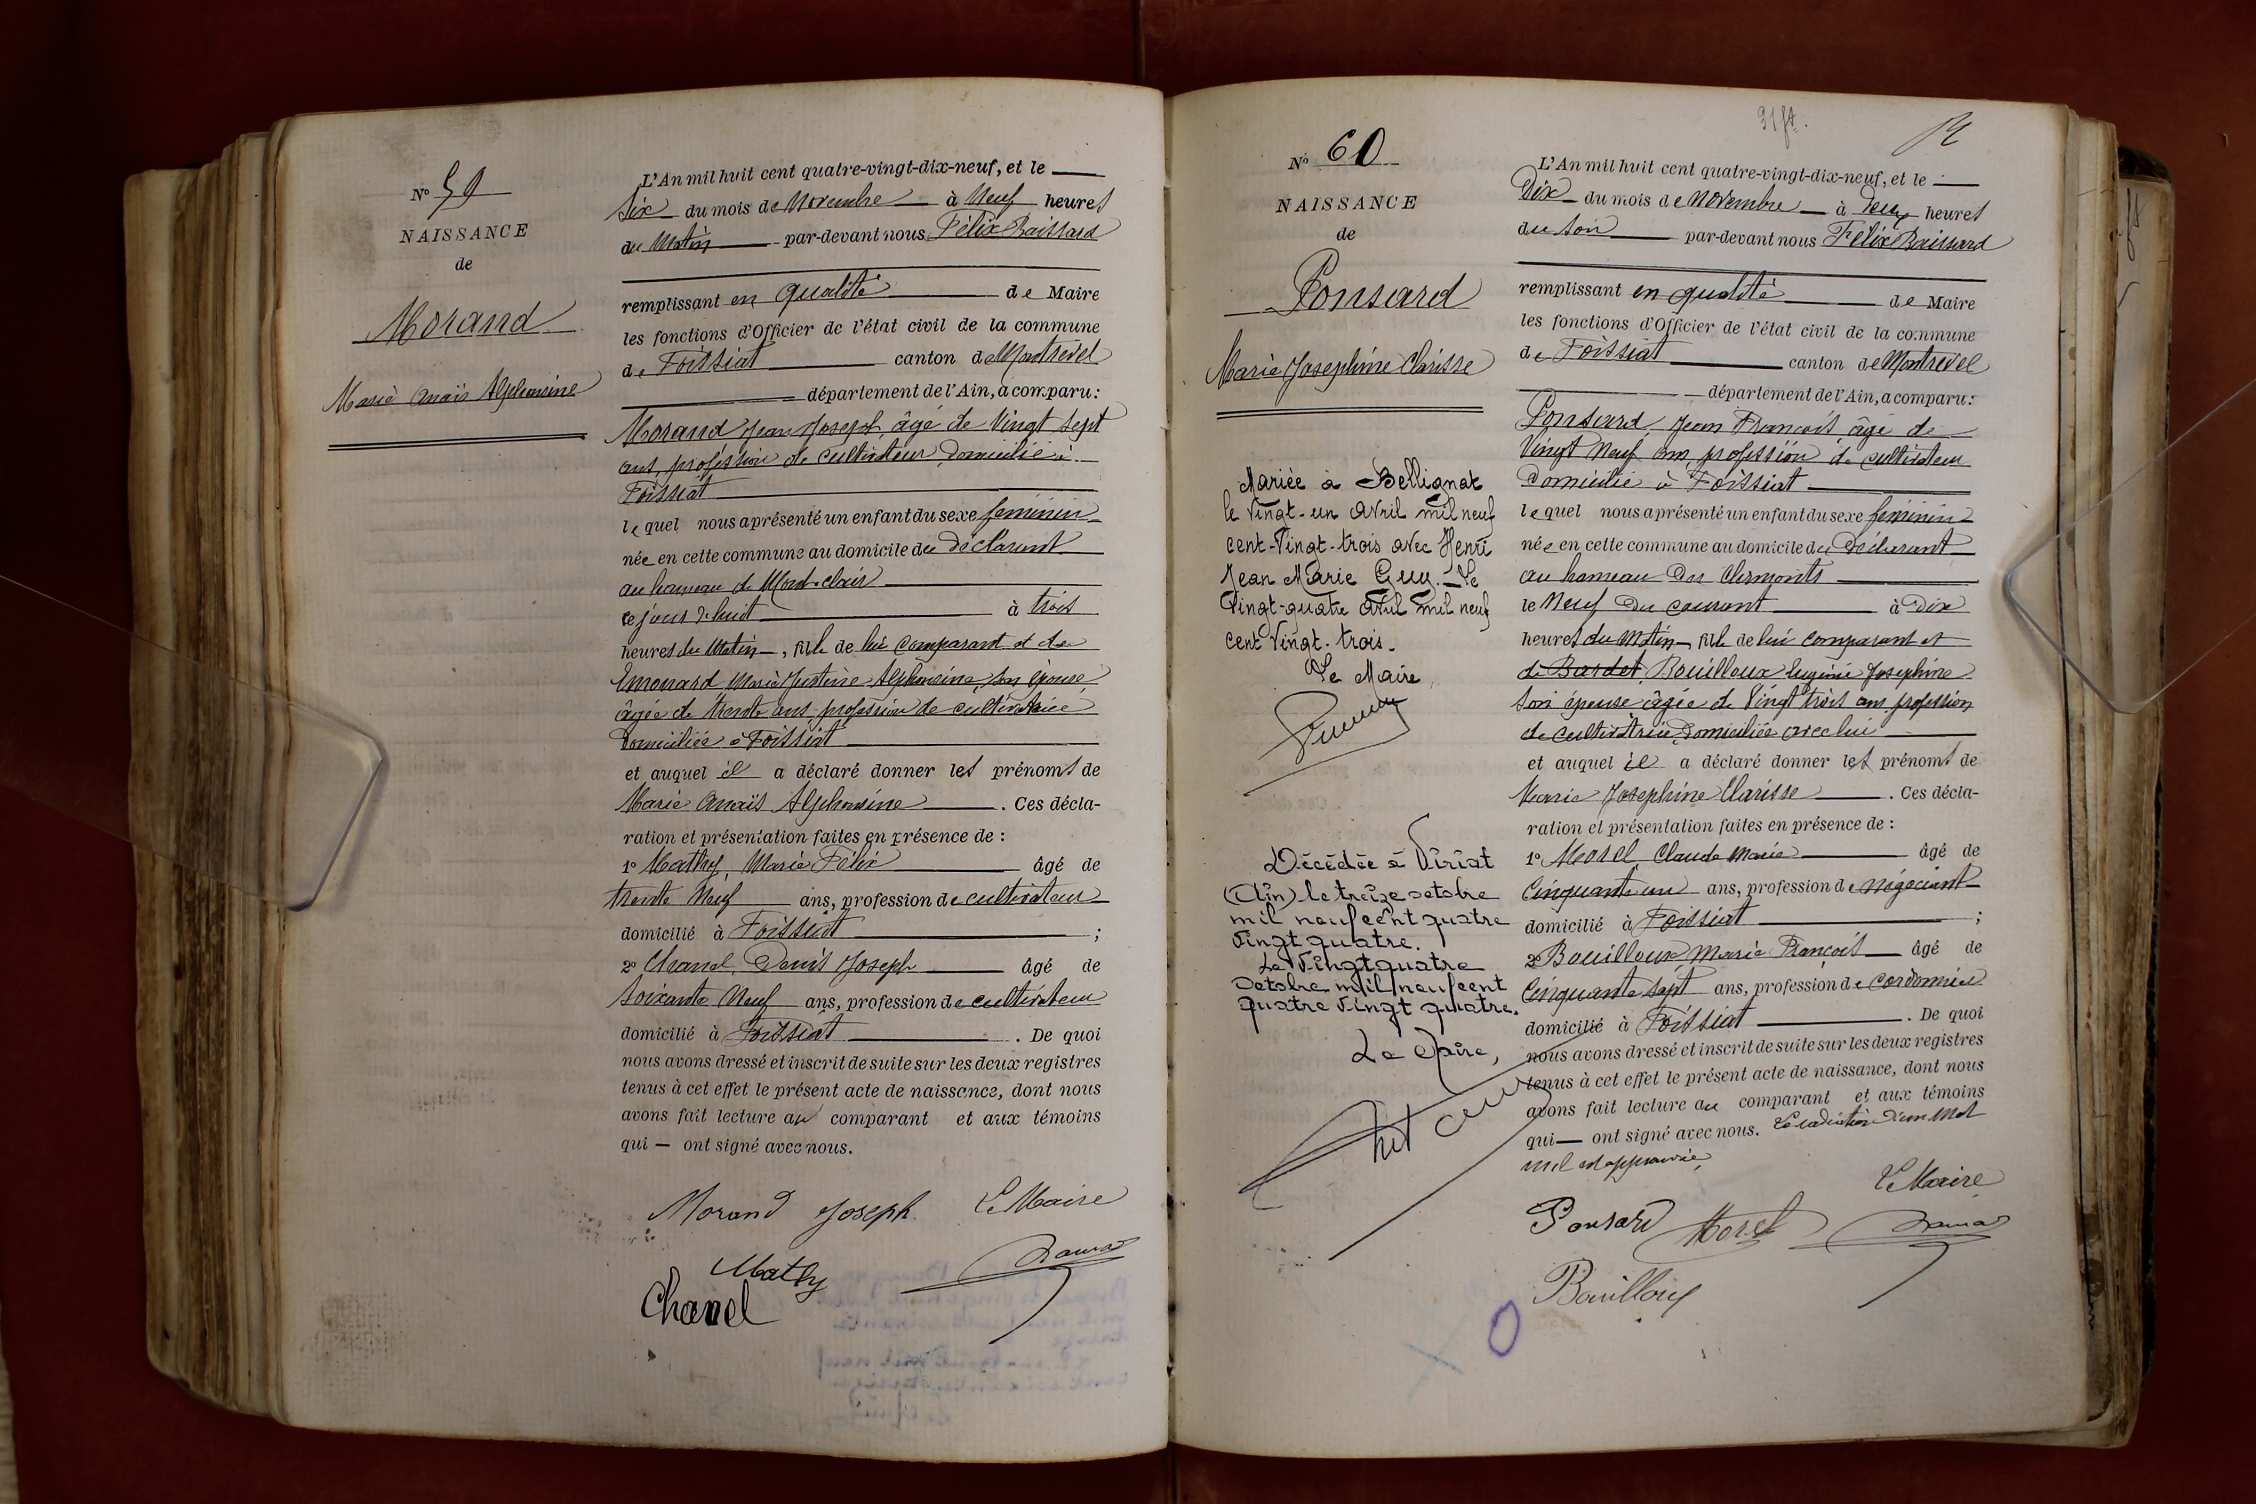 N° 59
NAISSANCE
de
Morand
Marie Anaïs Alphonsine
L'An mil huit cent quatre-vingt-dix-neuf, et le
Six du mois de Novembre à Neuf heures
du Matin par-devant nous Félix
remplissant en qualité de Maire
les fonctions d'Officier de l'état civil de la commune
de Foissiat canton de Montrevel
département de l'Ain, a comparu:
Morand Jean Joseph âgé de Vingt sept
ans, profession de cultivateur, domicilié à
Foissiat
lequel nous a présenté un enfant du sexe féminin
née en cette commune au domicile du déclarant
au hameau de Mont-clair
ce jour d'huit à trois
heures du Matin, fille de lui comparant et de
Emonard Marie Justine Alphonsine, son épouse
âgée de trente ans, profession de cultivatrice
domiciliée à Foissiat
et auquel il a déclaré donner les prénoms de
Marie Anaïs Alphonsine. Ces décla-
ration et présentation faites en présence de :
1° Mathy, Marie Félix âgé de
trente Neuf ans, profession de cultivateur
domicilié à Foissiat ;
2° Chanel, Denis Joseph âgé de
soixante Neuf ans, profession de cultivateur
domicilié à Foissiat. De quoi
nous avons dressé et inscrit de suite sur les deux registres
tenus à cet effet le présent acte de naissance, dont nous
avons fait lecture au comparant et aux témoins
qui — ont signé avec nous.
Morand Joseph Le Maire
Mathy
Chanel
N° 60
NAISSANCE
de
Ponsard
Marie Josephine Clarisse
Mariée à Bellignat
le vingt-un avril mil neuf
cent-vingt-trois avec Henri
Jean Marie Guy. - Le
vingt-quatre avril mil neuf
cent vingt-trois.
Le Maire,
Décédée à Viriat
(Ain) le treize octobre
mil neuf cent quatre
vingt quatre.
Le vingt quatre
octobre mil neuf cent
quatre vingt quatre.
Le Maire,
L'An mil huit cent quatre-vingt-dix-neuf, et le
Dix du mois de Novembre à Deux heures
du soir par-devant nous Félix
remplissant en qualité de Maire
les fonctions d'Officier de l'état civil de la commune
de Foissiat canton de Montrevel
département de l'Ain, a comparu:
Ponsard Jean François âgé de
Vingt Neuf ans, profession de cultivateur
domicilié à Foissiat
lequel nous a présenté un enfant du sexe féminin
née en cette commune au domicile du déclarant
au hameau des Clermonts
le Neuf du courant à Dix
heures du Matin, fille de lui comparant et
de Bardet Bouilloux Eugénie Josephine
son épouse âgée de Vingt trois ans profession
de cultivatrice, domiciliée avec lui
et auquel il a déclaré donner les prénoms de
Marie Josephine Clarisse. Ces décla-
ration et présentation faites en présence de :
1° Morel, Claude Marie âgé de
Cinquante un ans, profession de négociant
domicilié à Foissiat ;
2° Bouilloux Marie François âgé de
Cinquante sept ans, profession de cordonnier
domicilié à Foissiat. De quoi
nous avons dressé et inscrit de suite sur les deux registres
tenus à cet effet le présent acte de naissance, dont nous
avons fait lecture au comparant et aux témoins
qui — ont signé avec nous. La radiation d'un mot
nul est approuvée,
Le Maire
Ponsard Morel
Bouilloux